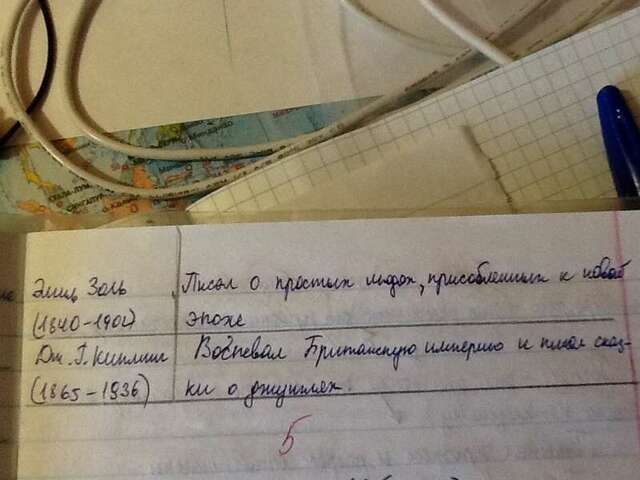 Эмиль Золь Писал о простых людях, присобленных к новой
(1840-1902) эпохе
Дж. Г. Киплинг Воспевал Британскую империю и писал сказ-
(1865-1936) ки о джунглях.
5